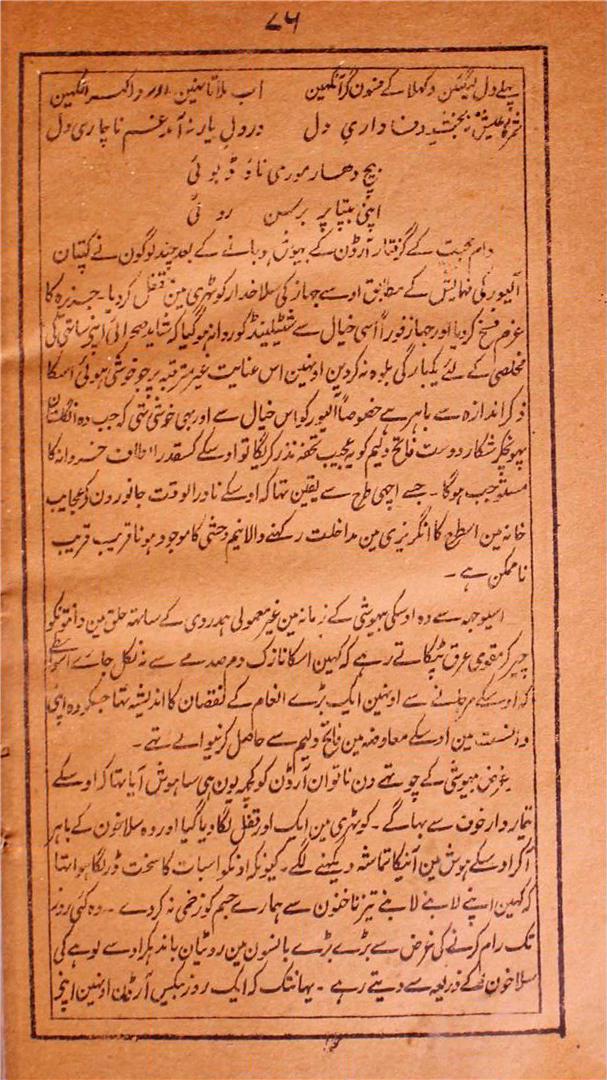 ۷۶
پہلے دل لیگئین دکھلا کے فسون گر آنکھین اب ملاتا نہین اور اکسر آنکھین
ثمر کا طیش بخشید وفاداریِ دل در دلِ یار نہ آمد غم ناچاری دل
بیچ دھار موری ناؤ ڈبوئی
اپنی بپتا پر برہن روئی
دام محبت کے گرفتار آرڈن کے بیہوش ہوجانے کے بعد چند لوگون نے کپتان
الیور کی فہمایش کے مطابق اوسے جہاز کی سلاخدار کوٹہری مین قفل کردیا۔ جزیرہ کا
عزم فسخ کردیا اور جہاز فوراً اسی خیال سے شٹیلینڈ کو روانہ ہوگیا کہ شاید صحرائی اپنی ساتھی کی
مخلصی کے لئے یکبارگی بلوہ نہ کردین اونہین اس عنایت غیر مترقبہ پر جو خوشی ہوئی اسکا
ذکر اندازہ سے باہر ہے خصوصاً الیور کو اس خیال سے اور بھی خوشی تھی کہ جب وہ انگلستان
پہونچکر شکار دوست فاتح ولیم کو یہ عجیب تحفہ نذر کریگا تو اوسکے کسقدر الطاف خسروانہ کا
مستوجب ہوگا۔ جسے اچھی طرح سے یقین تہا کہ اوسکے نادر الوقت جانورون کے عجایب
خانہ مین اسطرح کا انگریزی مین مداخلت رکہنے والا نیم وحشی کا موجود ہونا قریب قریب
ناممکن ہے۔
اسیوجہ سے وہ اوسکی بیہوشی کے زمانہ مین غیر معمولی ہمدردی کے ساتھ حلق مین دانتونکو
چیر کر مقوی عرق ٹپکاتے رہے کہ کہین اسکا نازک دم صدمے سے نہ نکل جاے اسواسطے
کہ اوسکے مرجانے سے اونہین ایک بڑے انعام کے نقصان کا اندیشہ تہا جسکو وہ اپنی
دانست مین اوسکے معاوضہ مین فاتح ولیم سے حاصل کرنیوالے تھے۔
غرض بیہوشی کے چوتھے دن ناتوان آرڈن کو کچھ یون ہی سا ہوش آیا تہا کہ اوسکے
تیماردار خوف سے بہاگے۔ کوٹہری مین ایک اور قفل لگا دیا گیا اور وہ سلاخون کے باہر
آکر اوسکے ہوش مین آنیکا تماشہ دیکہنے لگے۔ کیونکہ اونکو اسبات کا سخت ڈر لگا ہوا تہا
کہ کہین اپنے لانبے لانبے تیز ناخنون سے ہمارے جسم کو زخمی نہ کردے۔ وہ کئی روز
تک رام کرنے کی غرض سے بڑے بڑے بانسون مین روٹیان باندہکر اوسے لوہے کی
سلاخون کے ذریعہ سے دیتے رہے۔ یہانتک کہ ایک روز بیکس آرڈن اونہین اپنی